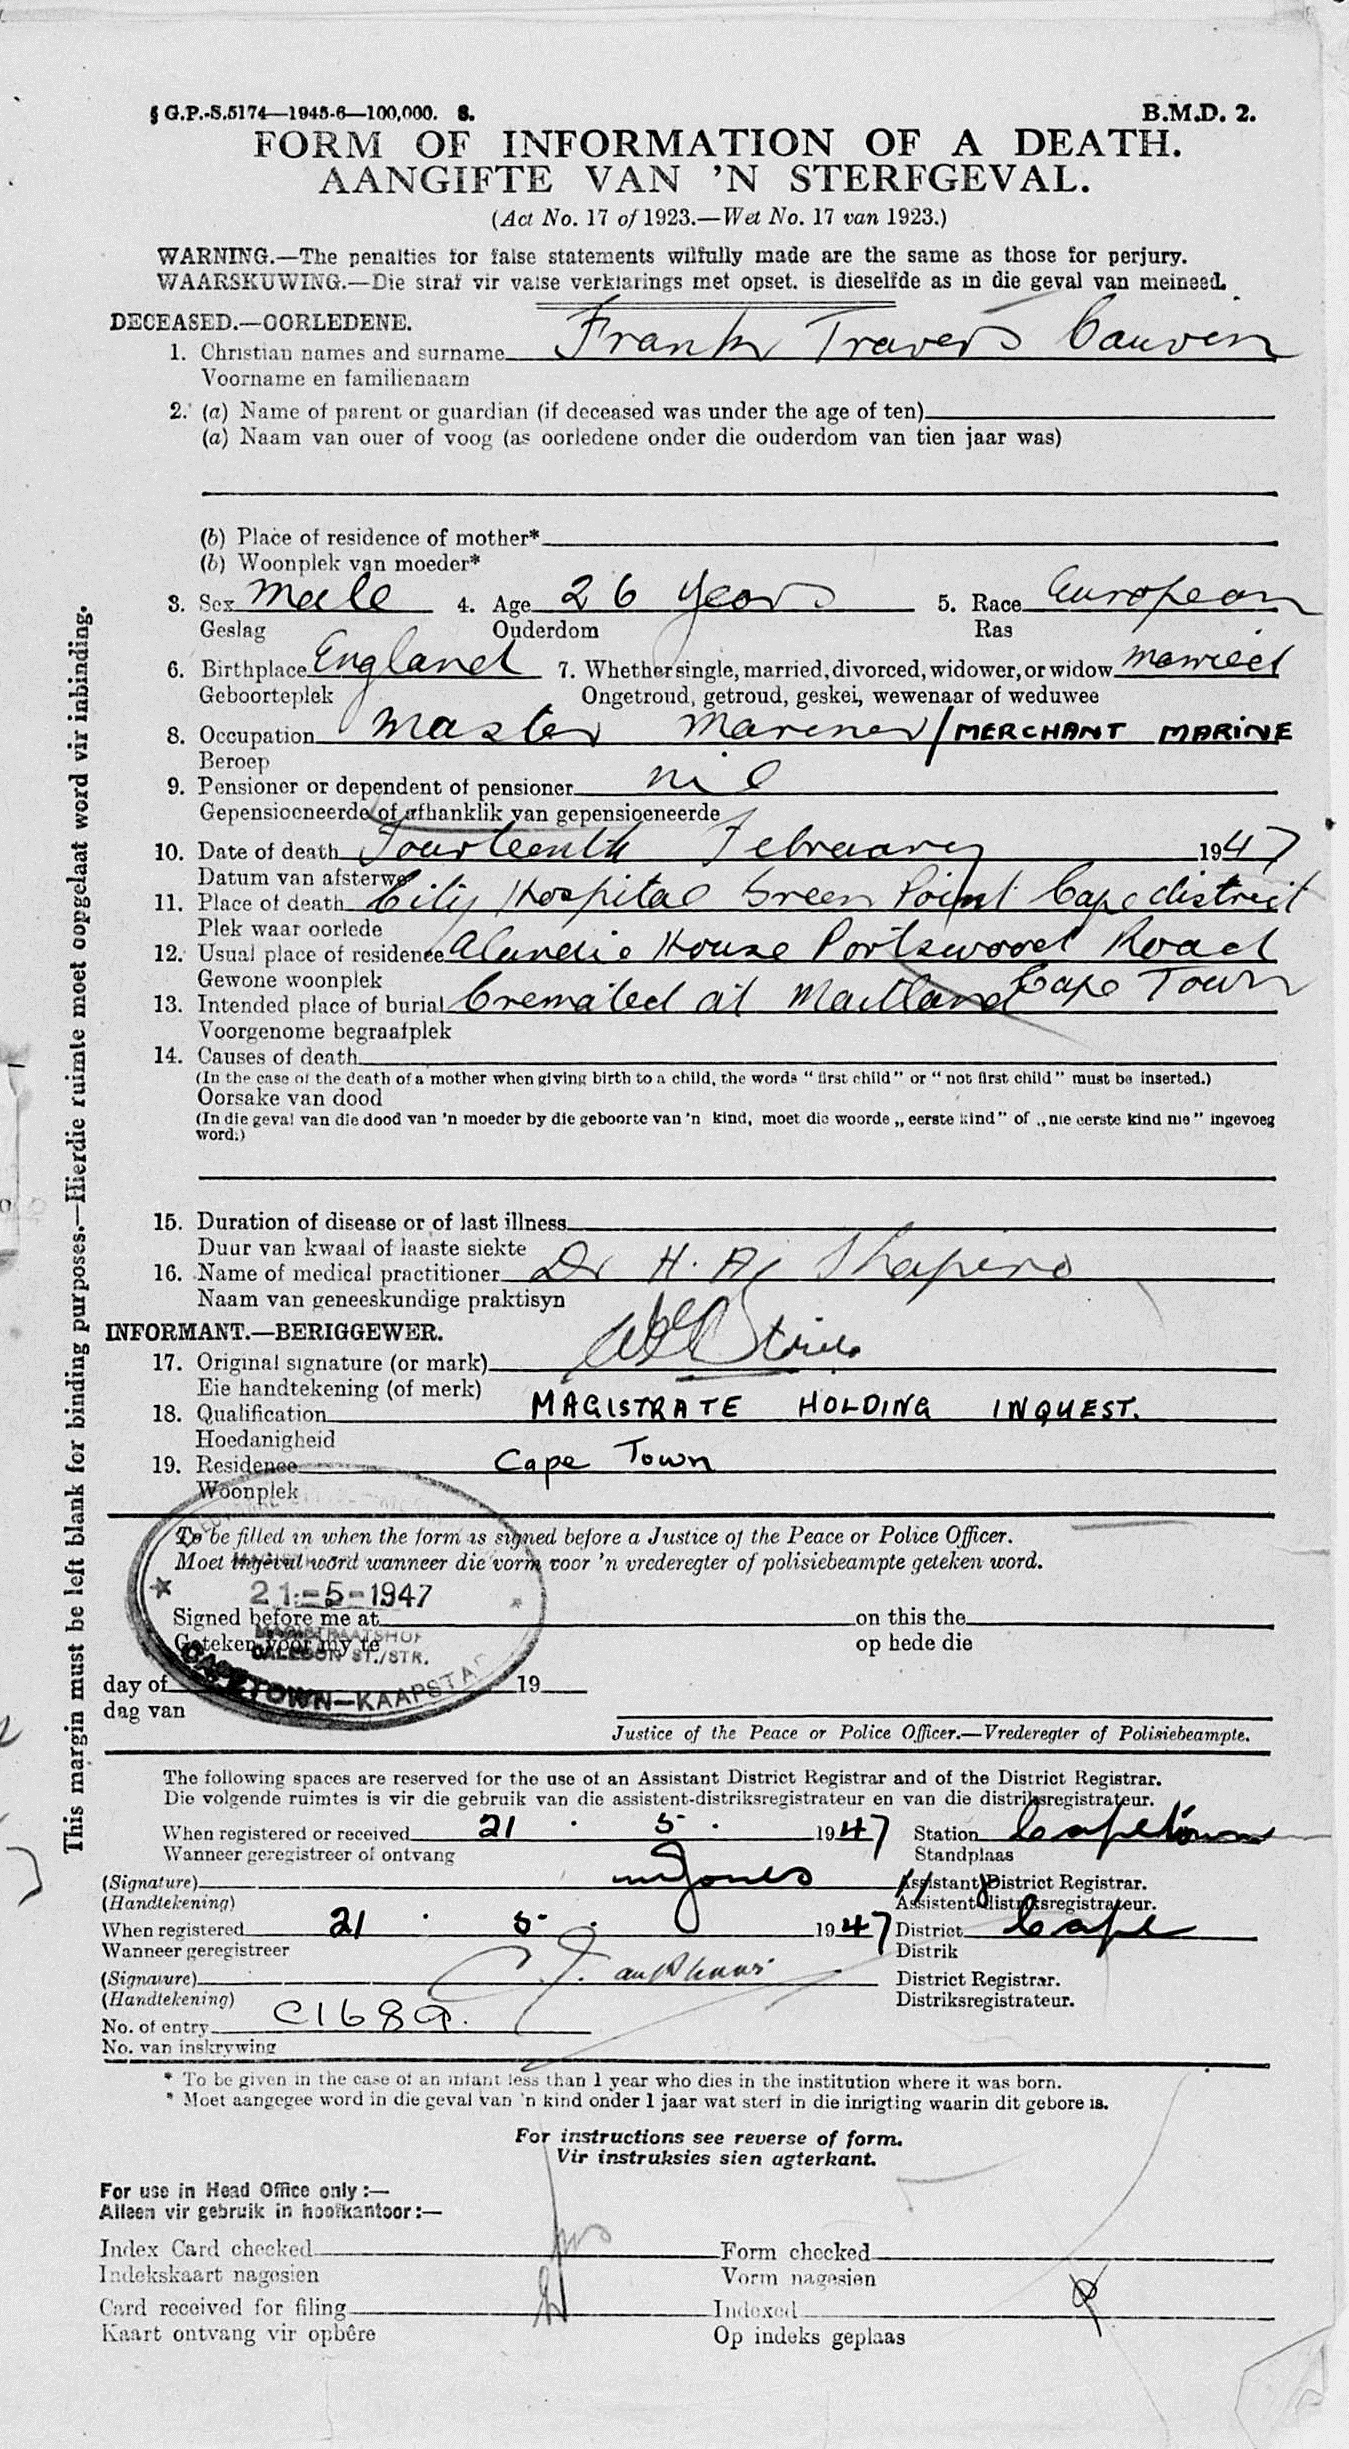 § G.P.-S.5174—1945-6—100,000. S. B.M.D. 2.
FORM OF INFORMATION OF A DEATH.
AANGIFTE VAN 'N STERFGEVAL.
(Act No. 17 of 1923.—Wet No. 17 van 1923.)
WARNING.—The penalties for false statements wilfully made are the same as those for perjury.
WAARSKUWING.—Die straf vir valse verklarings met opset, is dieselfde as in die geval van meineed.
DECEASED.—OORLEDENE.
1. Christian names and surname Frank Travers Cauvin
Voorname en familienaam
2. (a) Name of parent or guardian (if deceased was under the age of ten)
(a) Naam van ouer of voog (as oorledene onder die ouderdom van tien jaar was)
(b) Place of residence of mother*
(b) Woonplek van moeder*
3. Sex Male 4. Age 26 years 5. Race European
Geslag Ouderdom Ras
6. Birthplace England 7. Whether single, married, divorced, widower, or widow Married
Geboorteplek Ongetroud, getroud, geskei, wewenaar of weduwee
8. Occupation Master Mariner / MERCHANT MARINE
Beroep
9. Pensioner or dependent of pensioner nil
Gepensioeneerde of afhanklik van gepensioeneerde
10. Date of death Fourteenth February 1947
Datum van afsterwe
11. Place of death City Hospital Green Point Cape district
Plek waar oorlede
12. Usual place of residence House Portswood Road
Cape Town
Gewone woonplek
13. Intended place of burial Cremated at Maitland
Voorgenome begraafplek
14. Causes of death
(In the case of the death of a mother when giving birth to a child, the words "first child" or "not first child" must be inserted.)
Oorsake van dood
(In die geval van die dood van 'n moeder by die geboorte van 'n kind, moet die woorde „eerste kind" of „nie eerste kind nie" ingevoeg
word.)
15. Duration of disease or of last illness
Duur van kwaal of laaste siekte
16. Name of medical practitioner Dr H. A. Shapiro
Naam van geneeskundige praktisyn
INFORMANT.—BERIGGEWER.
17. Original signature (or mark)
Eie handtekening (of merk)
18. Qualification MAGISTRATE HOLDING INQUEST.
Hoedanigheid
19. Residence Cape Town
Woonplek
To be filled in when the form is signed before a Justice of the Peace or Police Officer.
Moet ingevul word wanneer die vorm voor 'n vrederegter of polisiebeampte geteken word.
21-5-1947
Signed before me at on this the
MAGISTRAATSHOF
Geteken voor my te op hede die
CALEDON ST./STR.
CAPE TOWN—KAAPSTAD
day of 19
dag van
Justice of the Peace or Police Officer.—Vrederegter of Polisiebeampte.
The following spaces are reserved for the use of an Assistant District Registrar and of the District Registrar.
Die volgende ruimtes is vir die gebruik van die assistent-distriksregistrateur en van die distriksregistrateur.
When registered or received 21 . 5 . 1947 Station Capetown
Wanneer geregistreer of ontvang Standplaas
(Signature) Jones Assistant District Registrar.
(Handtekening) Assistent-distriksregistrateur.
When registered 21 . 5 . 1947 District Cape
Wanneer geregistreer Distrik
(Signature) District Registrar.
(Handtekening) Distriksregistrateur.
No. of entry C1689.
No. van inskrywing
* To be given in the case of an infant less than 1 year who dies in the institution where it was born.
* Moet aangegee word in die geval van 'n kind onder 1 jaar wat sterf in die inrigting waarin dit gebore is.
For instructions see reverse of form.
Vir instruksies sien agterkant.
For use in Head Office only :—
Alleen vir gebruik in hoofkantoor :—
Index Card checked Form checked
Indekskaart nagesien Vorm nagesien
Card received for filing Indexed
Kaart ontvang vir opbêre Op indeks geplaas
This margin must be left blank for binding purposes.—Hierdie ruimte moet oopgelaat word vir inbinding.